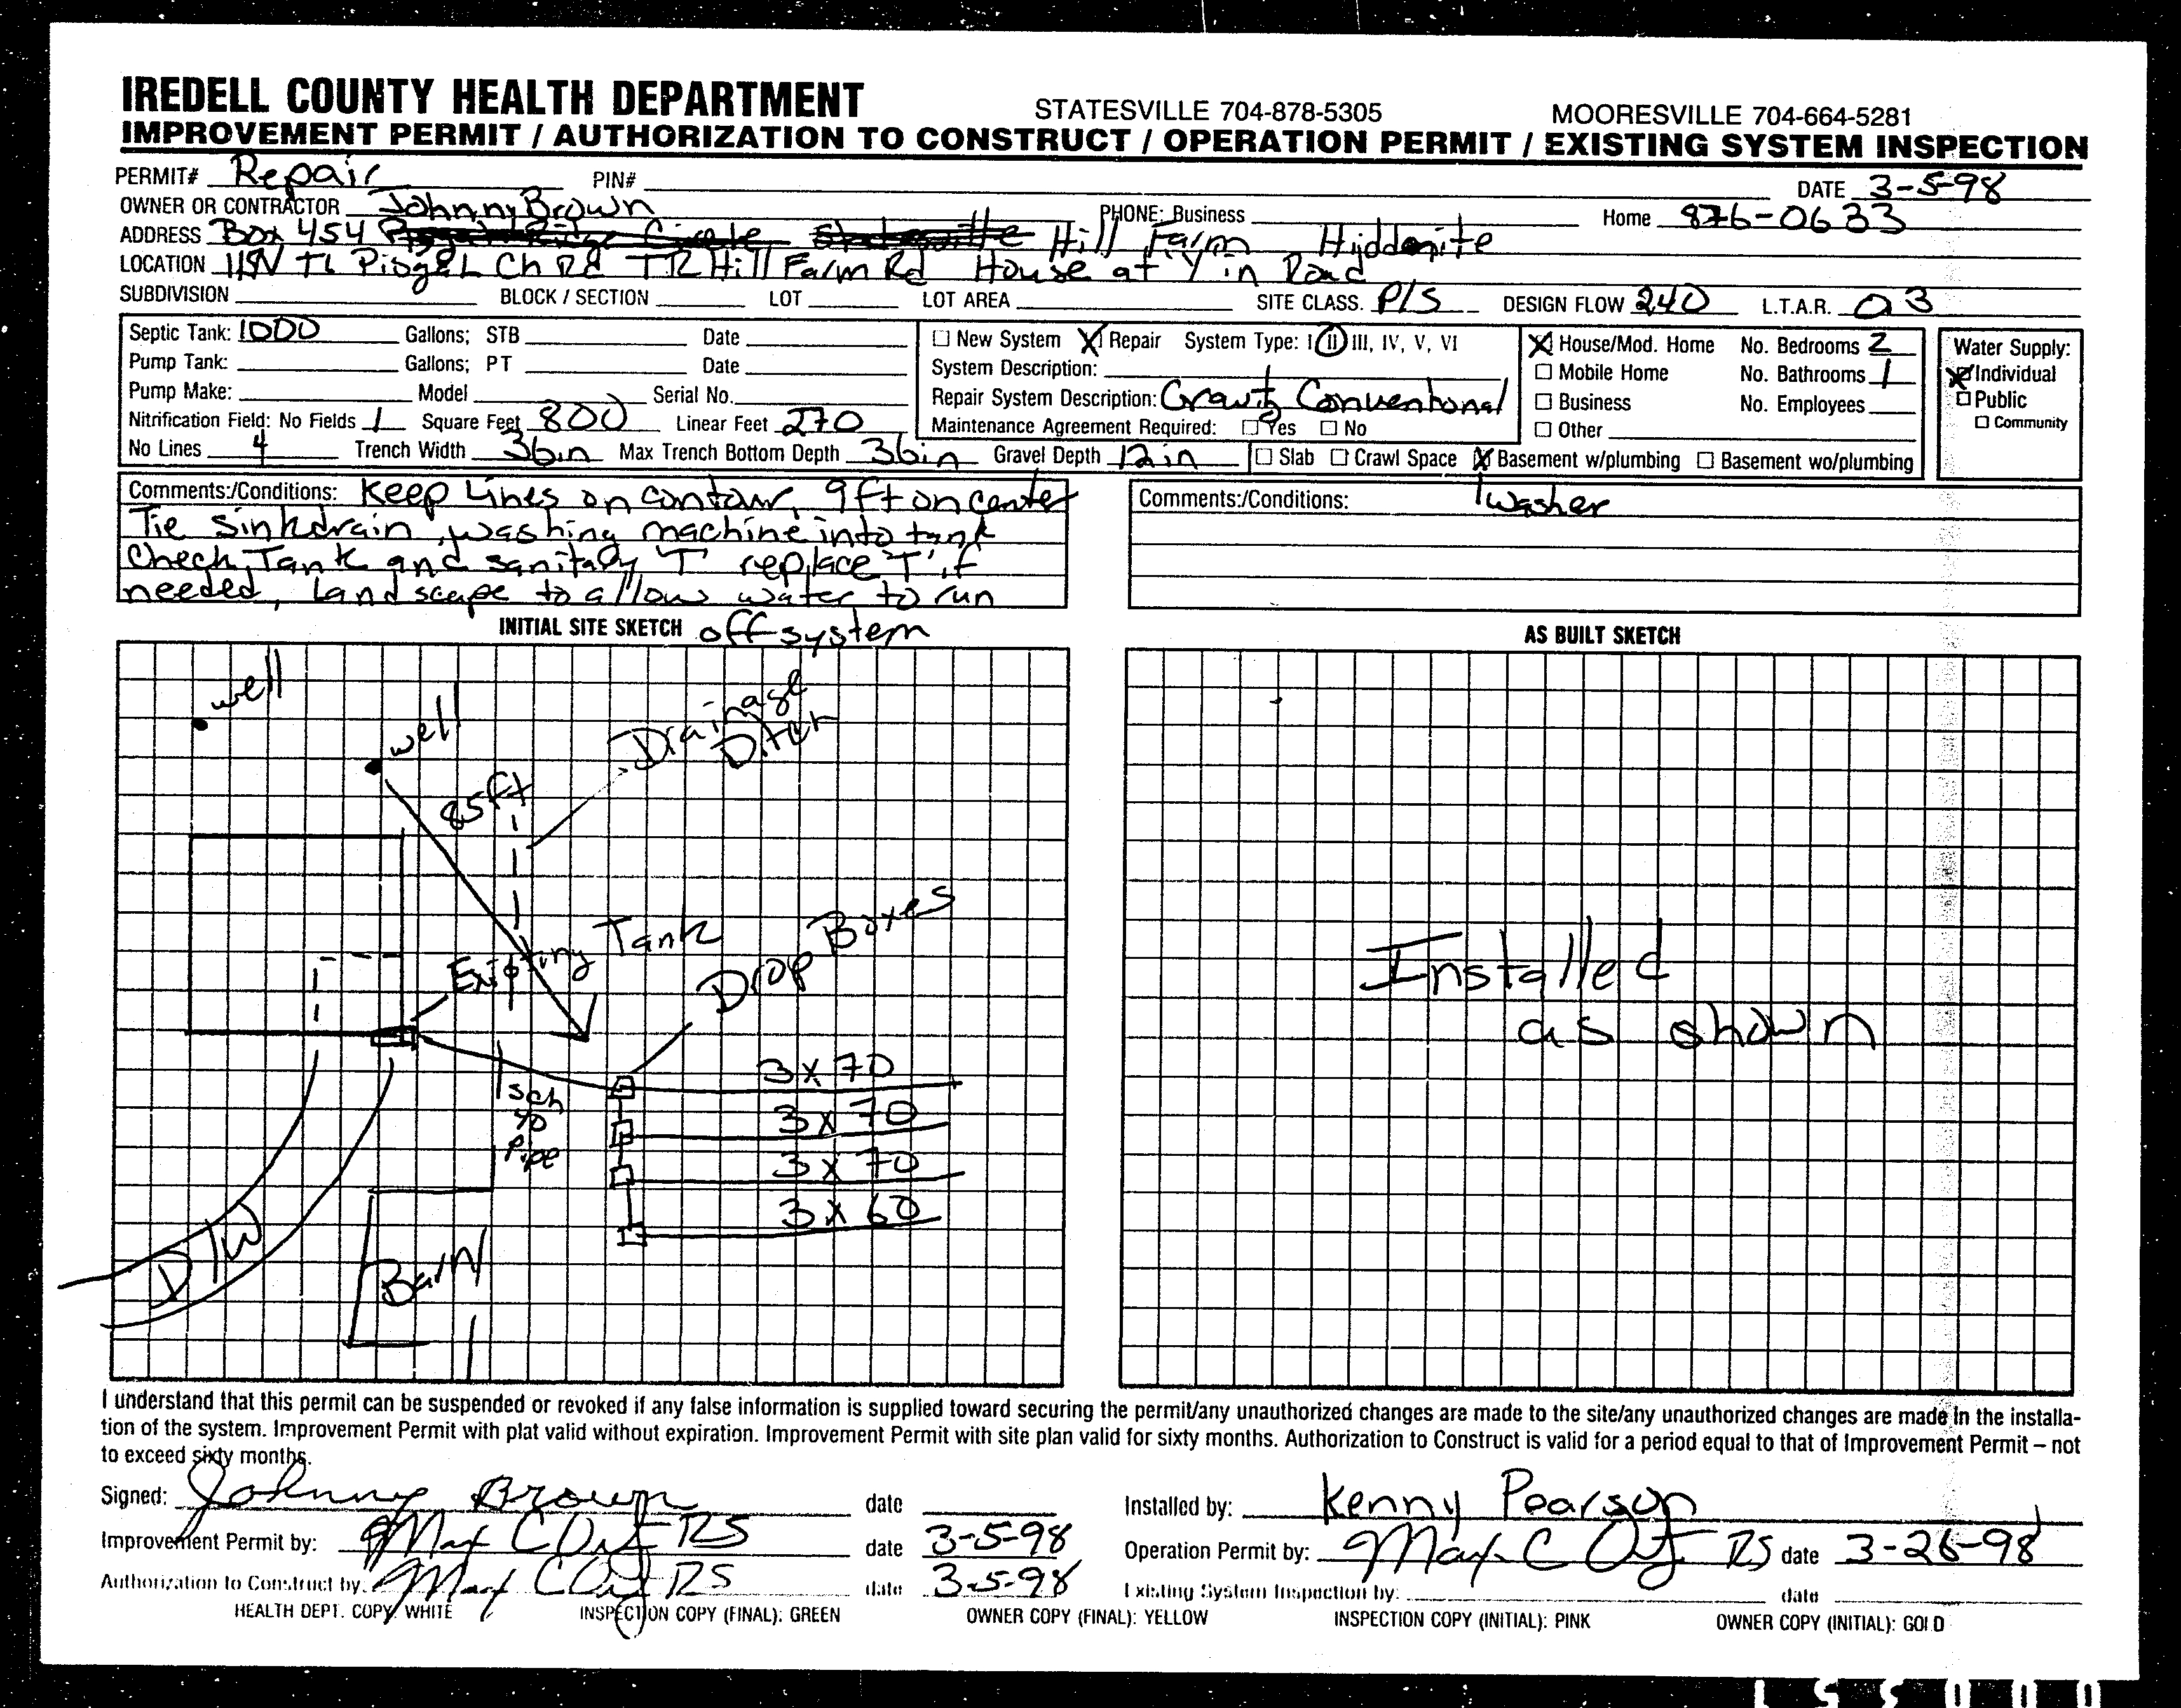 IREDELL COUNTY HEALTH DEPARTMENT STATESVILLE 704-878-5305 MOORESVILLE 704-664-5281
IMPROVEMENT PERMIT / AUTHORIZATION TO CONSTRUCT / OPERATION PERMIT / EXISTING SYSTEM INSPECTION
PERMIT# Repair PIN# DATE 3-5-98
OWNER OR CONTRACTOR Johnny Brown PHONE: Business Home 876-0633
ADDRESS Box 454 Hill Farm Hiddenite
LOCATION 115N TL Pisgah Ch Rd TR Hill Farm Rd House at Y in Road
SUBDIVISION BLOCK / SECTION LOT LOT AREA SITE CLASS. P/S DESIGN FLOW 240 L.T.A.R. 0.3
Septic Tank: 1000 Gallons; STB Date
Pump Tank: Gallons; PT Date
Pump Make: Model Serial No.
Nitrification Field: No Fields 1 Square Feet 800 Linear Feet 270
No Lines 4 Trench Width 36in Max Trench Bottom Depth 36in Gravel Depth 12in
New System X Repair System Type: I II III, IV, V, VI
System Description:
Repair System Description: Gravity Conventional
Maintenance Agreement Required: Yes No
X House/Mod. Home No. Bedrooms 2
Mobile Home No. Bathrooms 1
Business No. Employees
Other
Slab Crawl Space X Basement w/plumbing Basement wo/plumbing
Water Supply:
X Individual
Public
Community
Comments:/Conditions: Keep Lines on contour, 9ft on center
Tie sinkdrain, washing machine into tank
Check Tank and sanitary 'T' replace 'T' if
needed, Landscape to allow water to run
off system
Comments:/Conditions: washer
INITIAL SITE SKETCH
AS BUILT SKETCH
well
well
Drainage
Ditch
85ft
Existing Tank
Drop Boxes
Sch
40
Pipe
3x70
3x70
3x70
3x60
D/W
Barn
Installed
as shown
I understand that this permit can be suspended or revoked if any false information is supplied toward securing the permit/any unauthorized changes are made to the site/any unauthorized changes are made in the installa-
tion of the system. Improvement Permit with plat valid without expiration. Improvement Permit with site plan valid for sixty months. Authorization to Construct is valid for a period equal to that of Improvement Permit – not
to exceed sixty months.
Signed: Johnny Brown date
Installed by: Kenny Pearson
Improvement Permit by: Max C RS date 3-5-98
Operation Permit by: Max C RS date 3-26-98
Authorization to Construct by: Max C RS date 3-5-98
Existing System Inspection by: date
HEALTH DEPT. COPY: WHITE INSPECTION COPY (FINAL): GREEN OWNER COPY (FINAL): YELLOW INSPECTION COPY (INITIAL): PINK OWNER COPY (INITIAL): GOLD